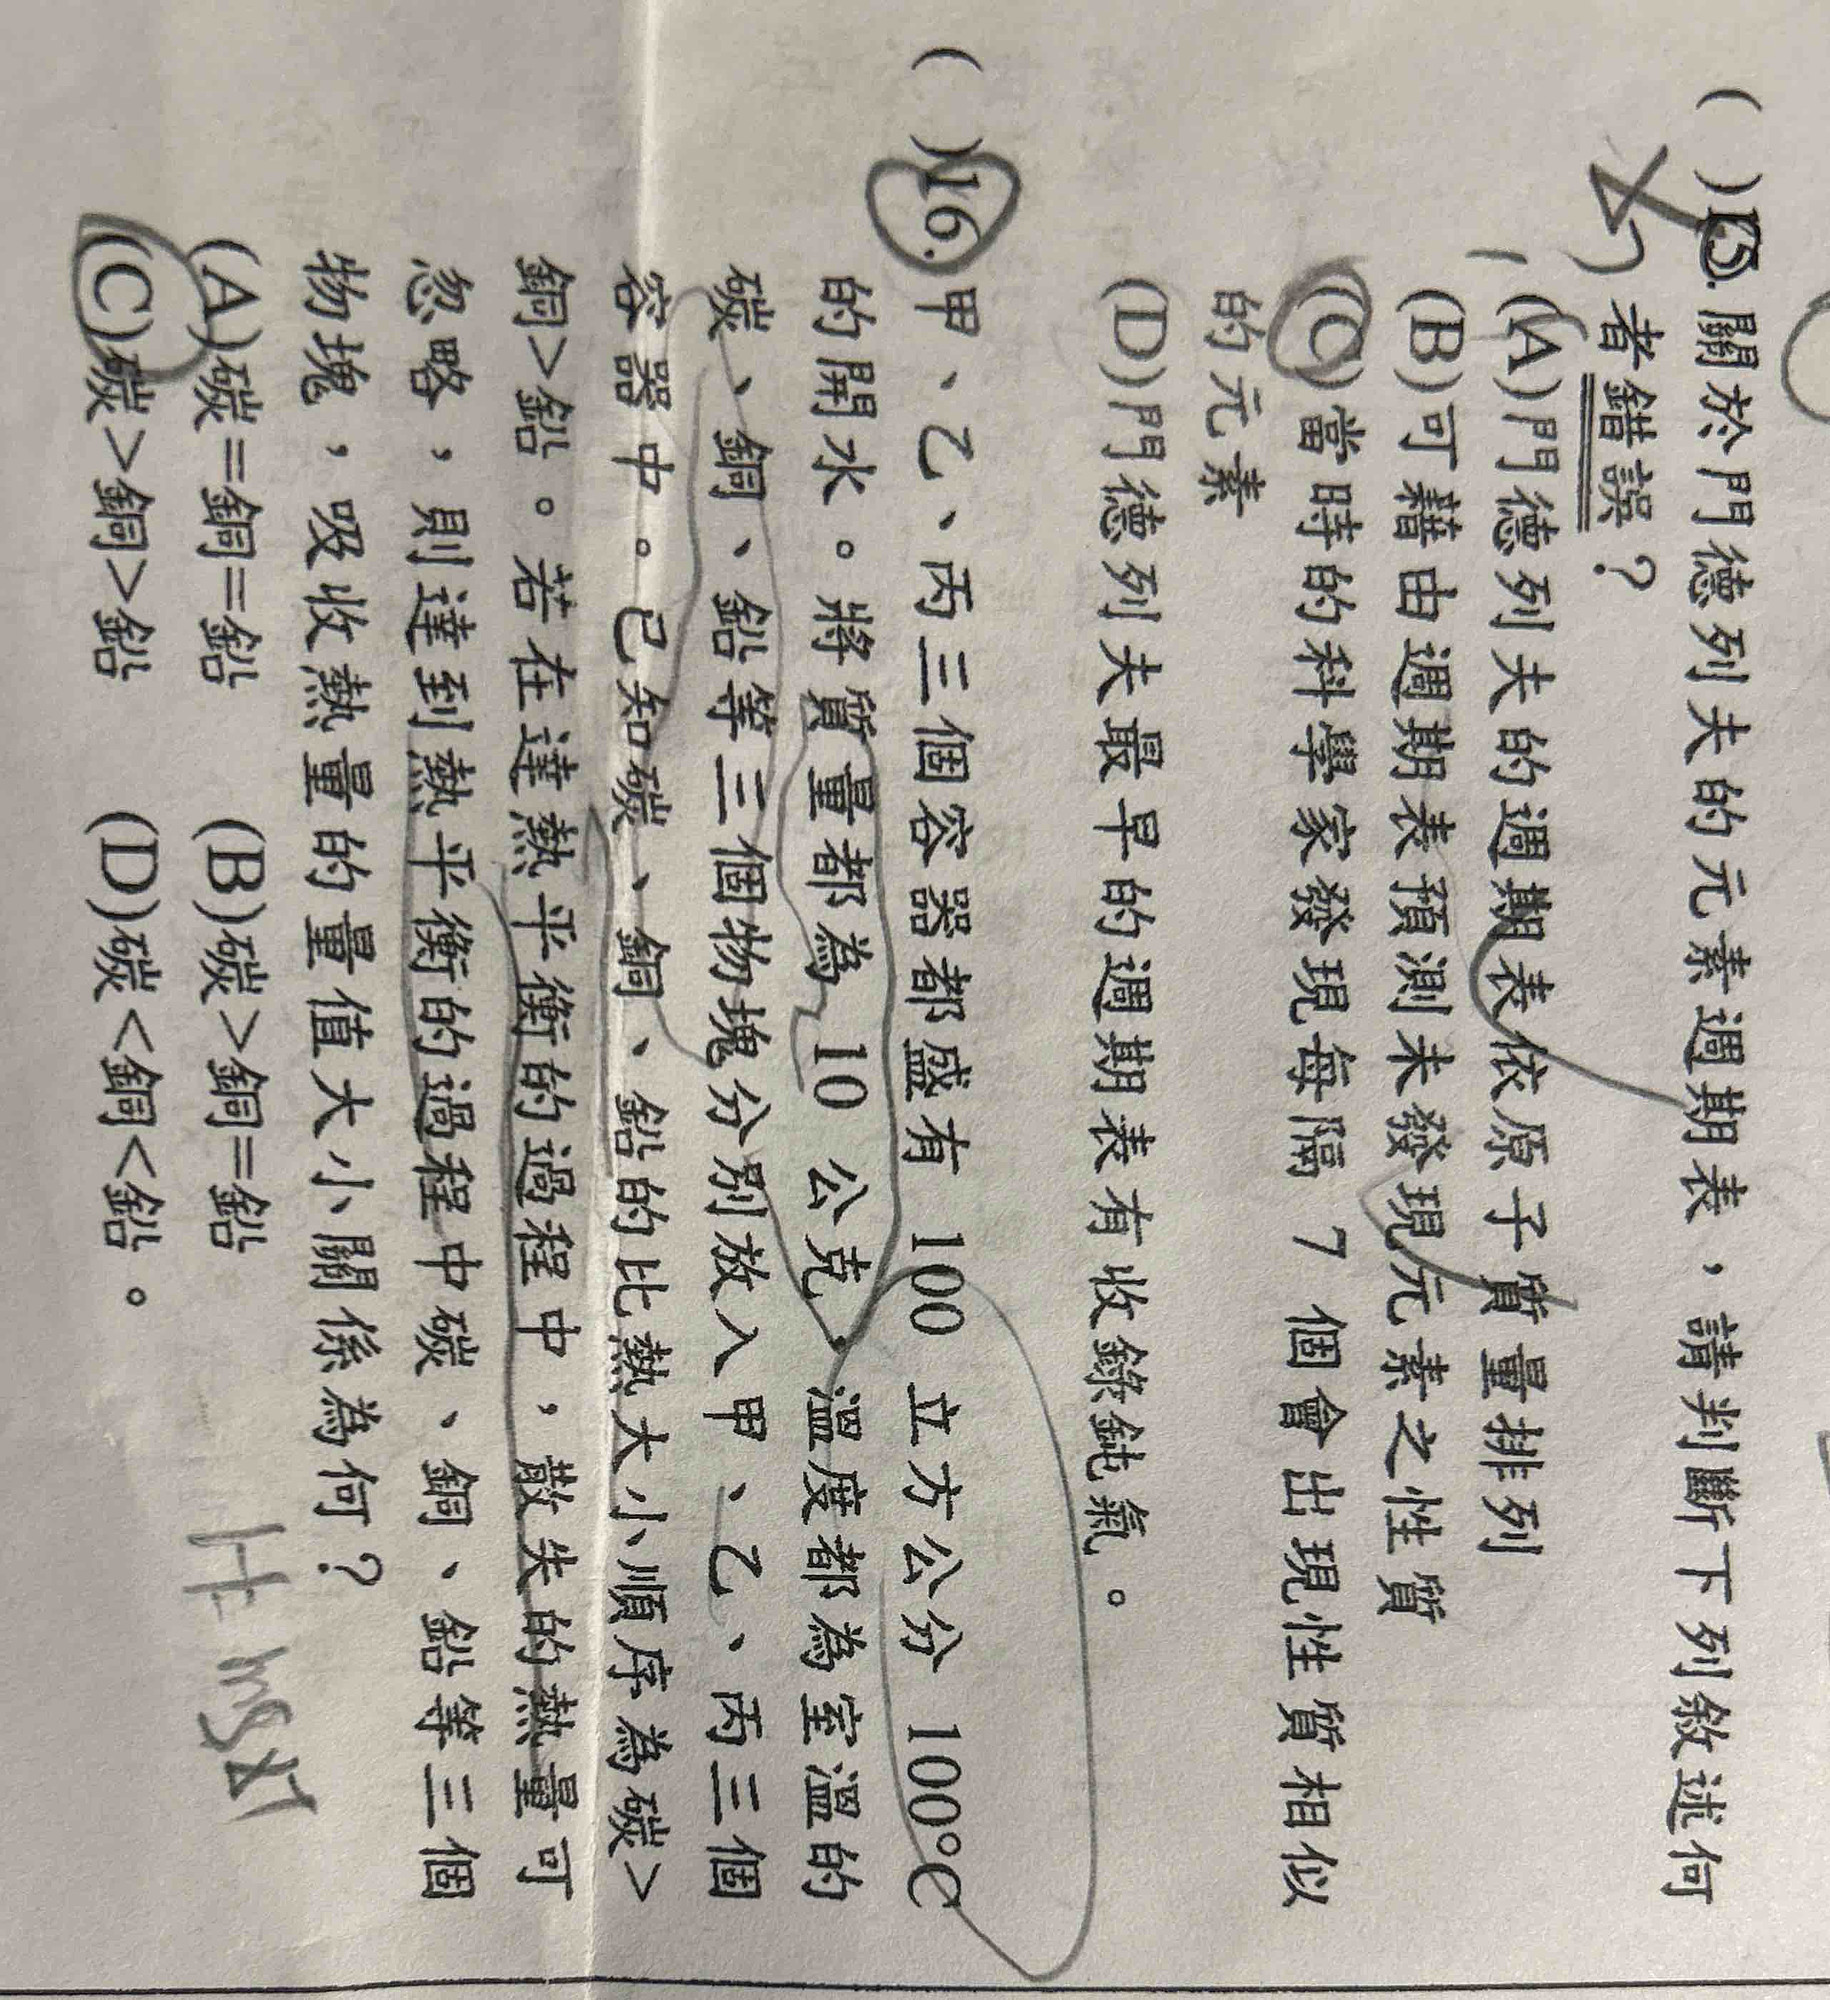 ( )15.關於門德列夫的元素週期表，請判斷下列敘述何
者錯誤？
(A)門德列夫的週期表依原子質量排列
(B)可藉由週期表預測未發現元素之性質
(C)當時的科學家發現每隔 7 個會出現性質相似
的元素
(D)門德列夫最早的週期表有收錄鈍氣。
( )16.甲、乙、丙三個容器都盛有 100 立方公分 100°C
的開水。將質量都為 10 公克、溫度都為室溫的
碳、銅、鉛等三個物塊分別放入甲、乙、丙三個
容器中。已知碳、銅、鉛的比熱大小順序為碳>
銅>鉛。若在達熱平衡的過程中，散失的熱量可
忽略，則達到熱平衡的過程中碳、銅、鉛等三個
物塊，吸收熱量的量值大小關係為何？
(A)碳=銅=鉛 (B)碳>銅=鉛
(C)碳>銅>鉛 (D)碳<銅<鉛。
H=msΔT